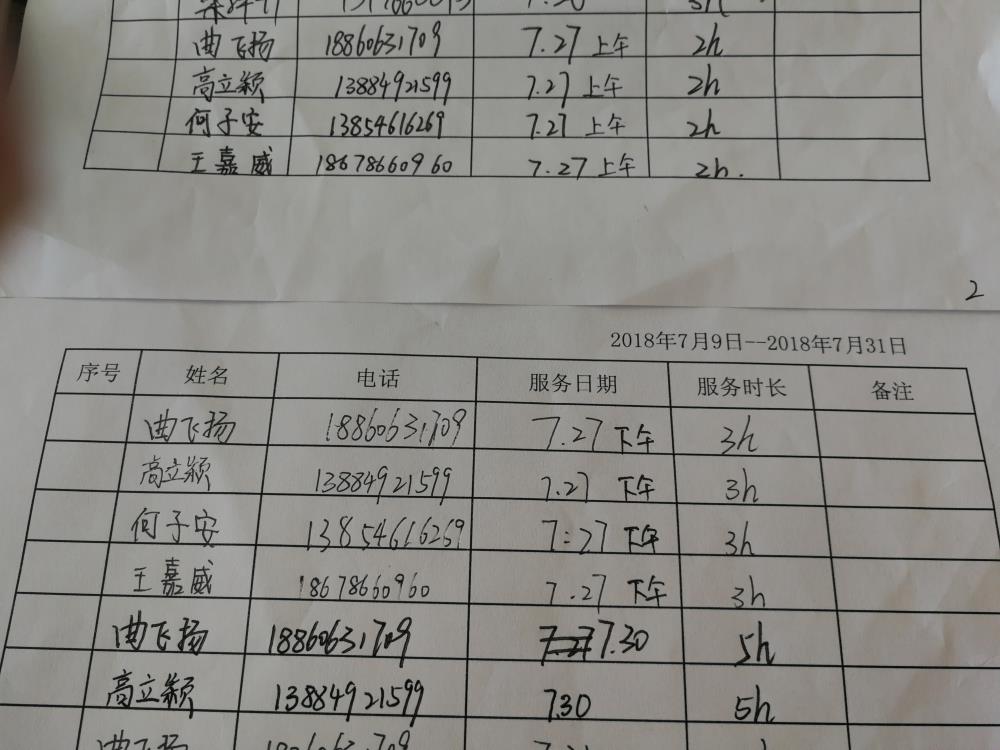 曲飞扬 18860631709 7.27 上午 2h
高立颖 13884921599 7.27 上午 2h
何子安 13854616269 7.27 上午 2h
王嘉威 18678660960 7.27 上午 2h.
2
2018年7月9日--2018年7月31日
序号 姓名 电话 服务日期 服务时长 备注
曲飞扬 18860631709 7.27 下午 3h
高立颖 13884921599 7.27 下午 3h
何子安 13854616269 7:27 下午 3h
王嘉威 18678660960 7.27 下午 3h
曲飞扬 18860631709 7.30 5h
高立颖 13884921599 7.30 5h
曲飞扬